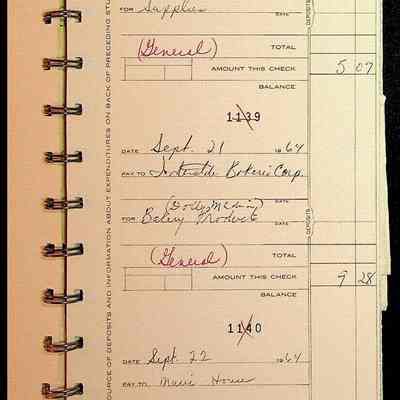 FOR Supplies DATE
(General) TOTAL
AMOUNT THIS CHECK 5 07
BALANCE
1139
DATE Sept. 21 1964
PAY TO Interstate Bakeries Corp.
(Dolly Madison) DATE
FOR Bakery Products
(General) TOTAL
AMOUNT THIS CHECK 9 28
BALANCE
1140
DATE Sept. 22 1964
PAY TO House
DEPOSITS
DEPOSITS
OURCE OF DEPOSITS AND INFORMATION ABOUT EXPENDITURES ON BACK OF PRECEDING STU